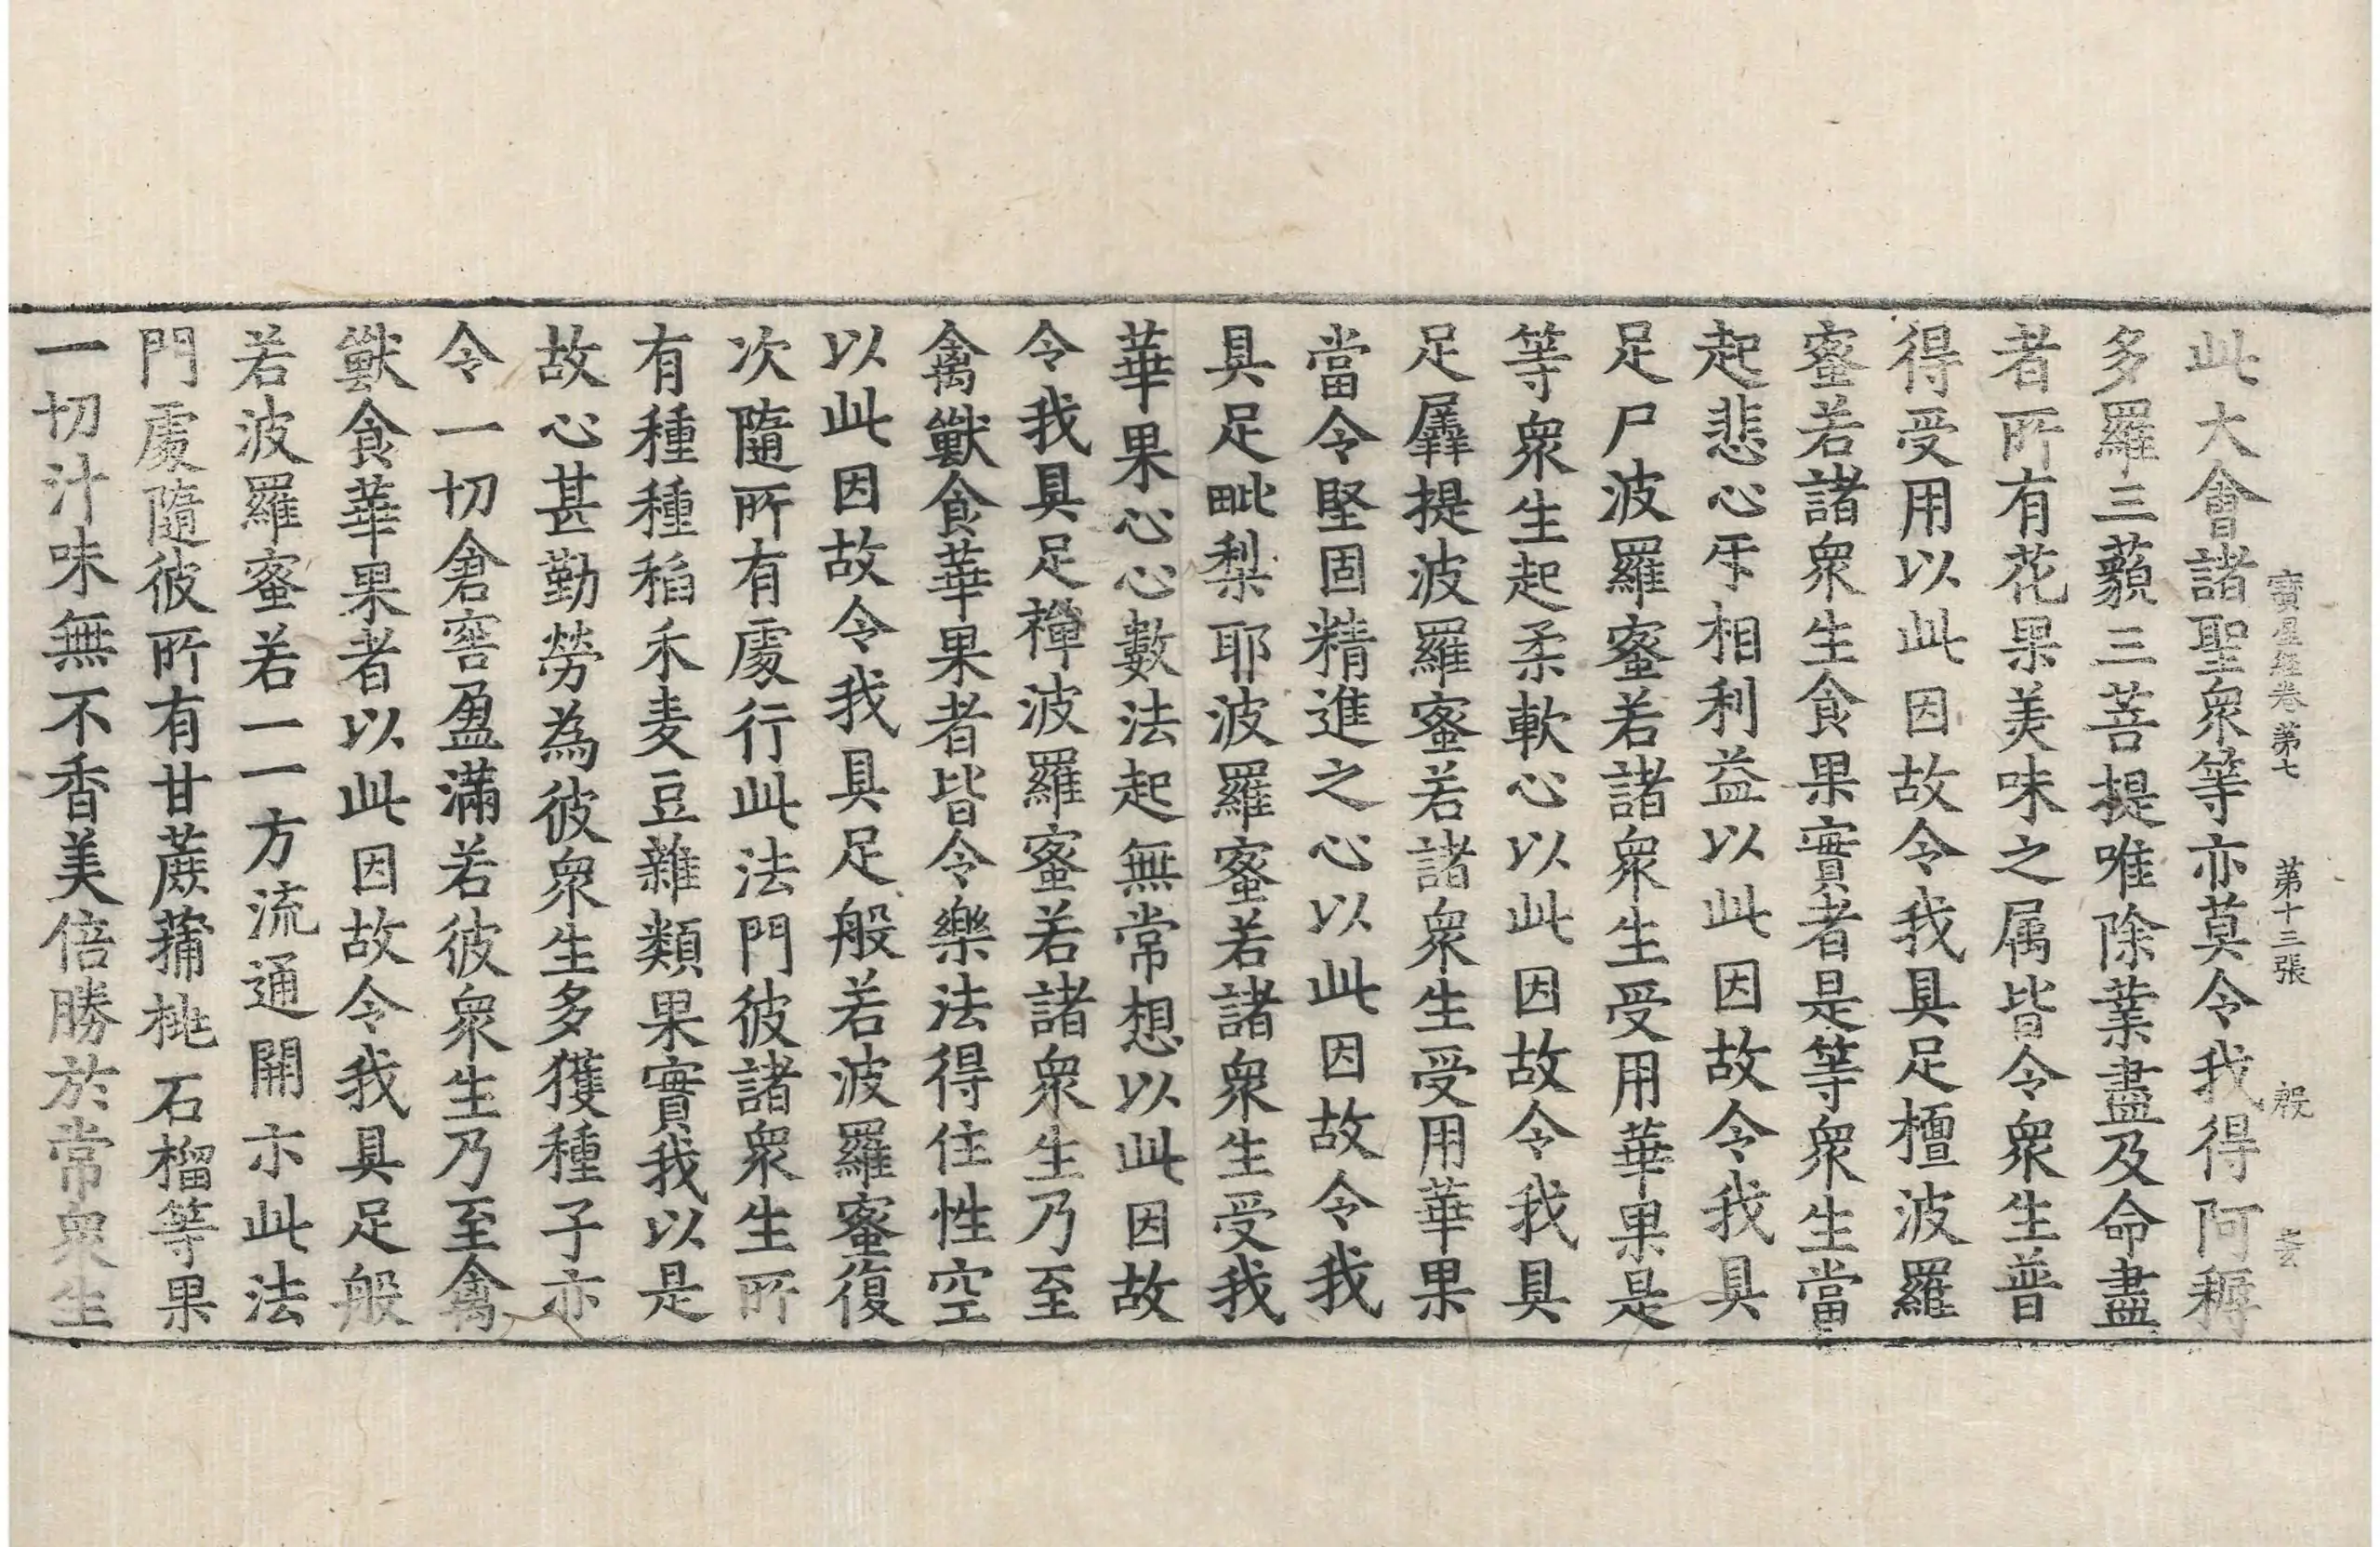 寶星經卷第七 第十三張 殷
此大會諸聖衆等亦莫令我得阿耨
多羅三藐三菩提唯除業盡及命盡
者所有花果美味之属皆令衆生普
得受用以此因故令我具足檀波羅
蜜若諸衆生食果實者是等衆生當
起悲心㸦相利益以此因故令我具
足尸波羅蜜若諸衆生受用華果是
等衆生起柔軟心以此因故令我具
足羼提波羅蜜若諸衆生受用華果
當令堅固精進之心以此因故令我
具足毗梨耶波羅蜜若諸衆生受我
華果心心數法起無常想以此因故
令我具足禪波羅蜜若諸衆生乃至
禽獸食華果者皆令樂法得住性空
以此因故令我具足般若波羅蜜復
次隨所有處行此法門彼諸衆生所
有種種稻禾麦豆雜類果實我以是
故心甚勤勞為彼衆生多獲種子亦
令一切倉窖盈滿若彼衆生乃至禽
獸食華果者以此因故令我具足般
若波羅蜜若一一方流通開示此法
門處隨彼所有甘蔗蒲桃石榴等果
一切汁味無不香美倍勝於常衆生